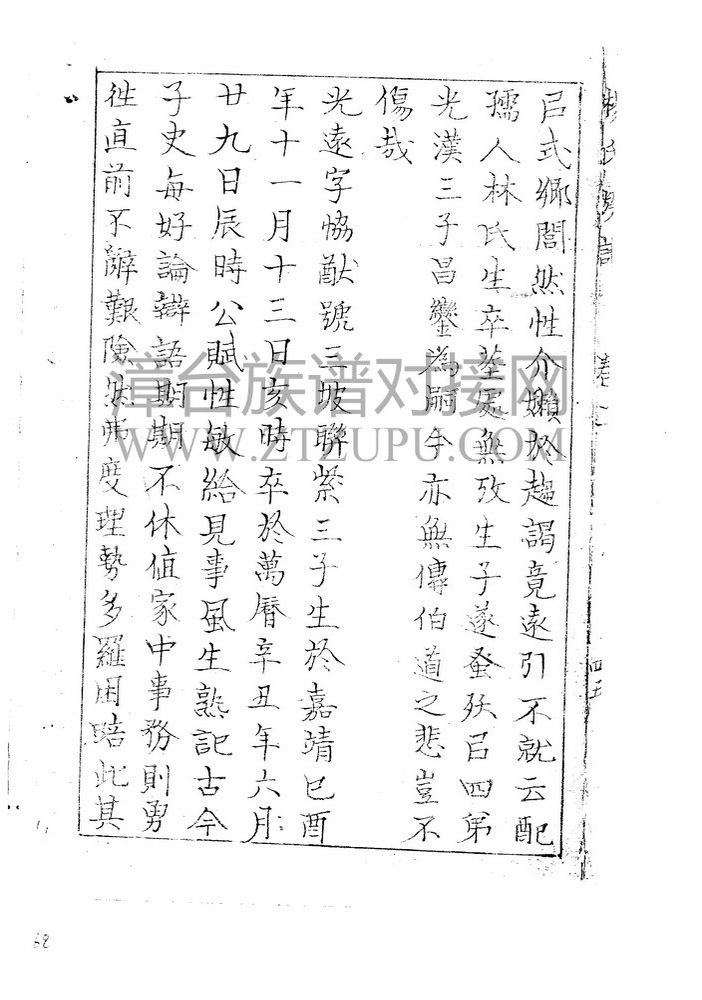 㠯式鄉閭然性介嬾於趨謁竟遠引不就云配
孺人林氏生卒塋處無攷生子遂蚤殀㠯四弟
光漢三子昌鑾為嗣今亦無傳伯道之悲豈不
傷哉
光遠字恊猷號三坡聯紫三子生於嘉靖己酉
年十一月十三日亥時卒於萬曆辛丑年六月
廿九日辰時公賦性敏給見事風生熟記古今
子史每好論辯語期期不休值家中事務則勇
徃直前不辭艱險然弗度理勢多羅困踣此其
卷
四五
漳台族谱对接网
WWW.ZTZUPU.COM
68